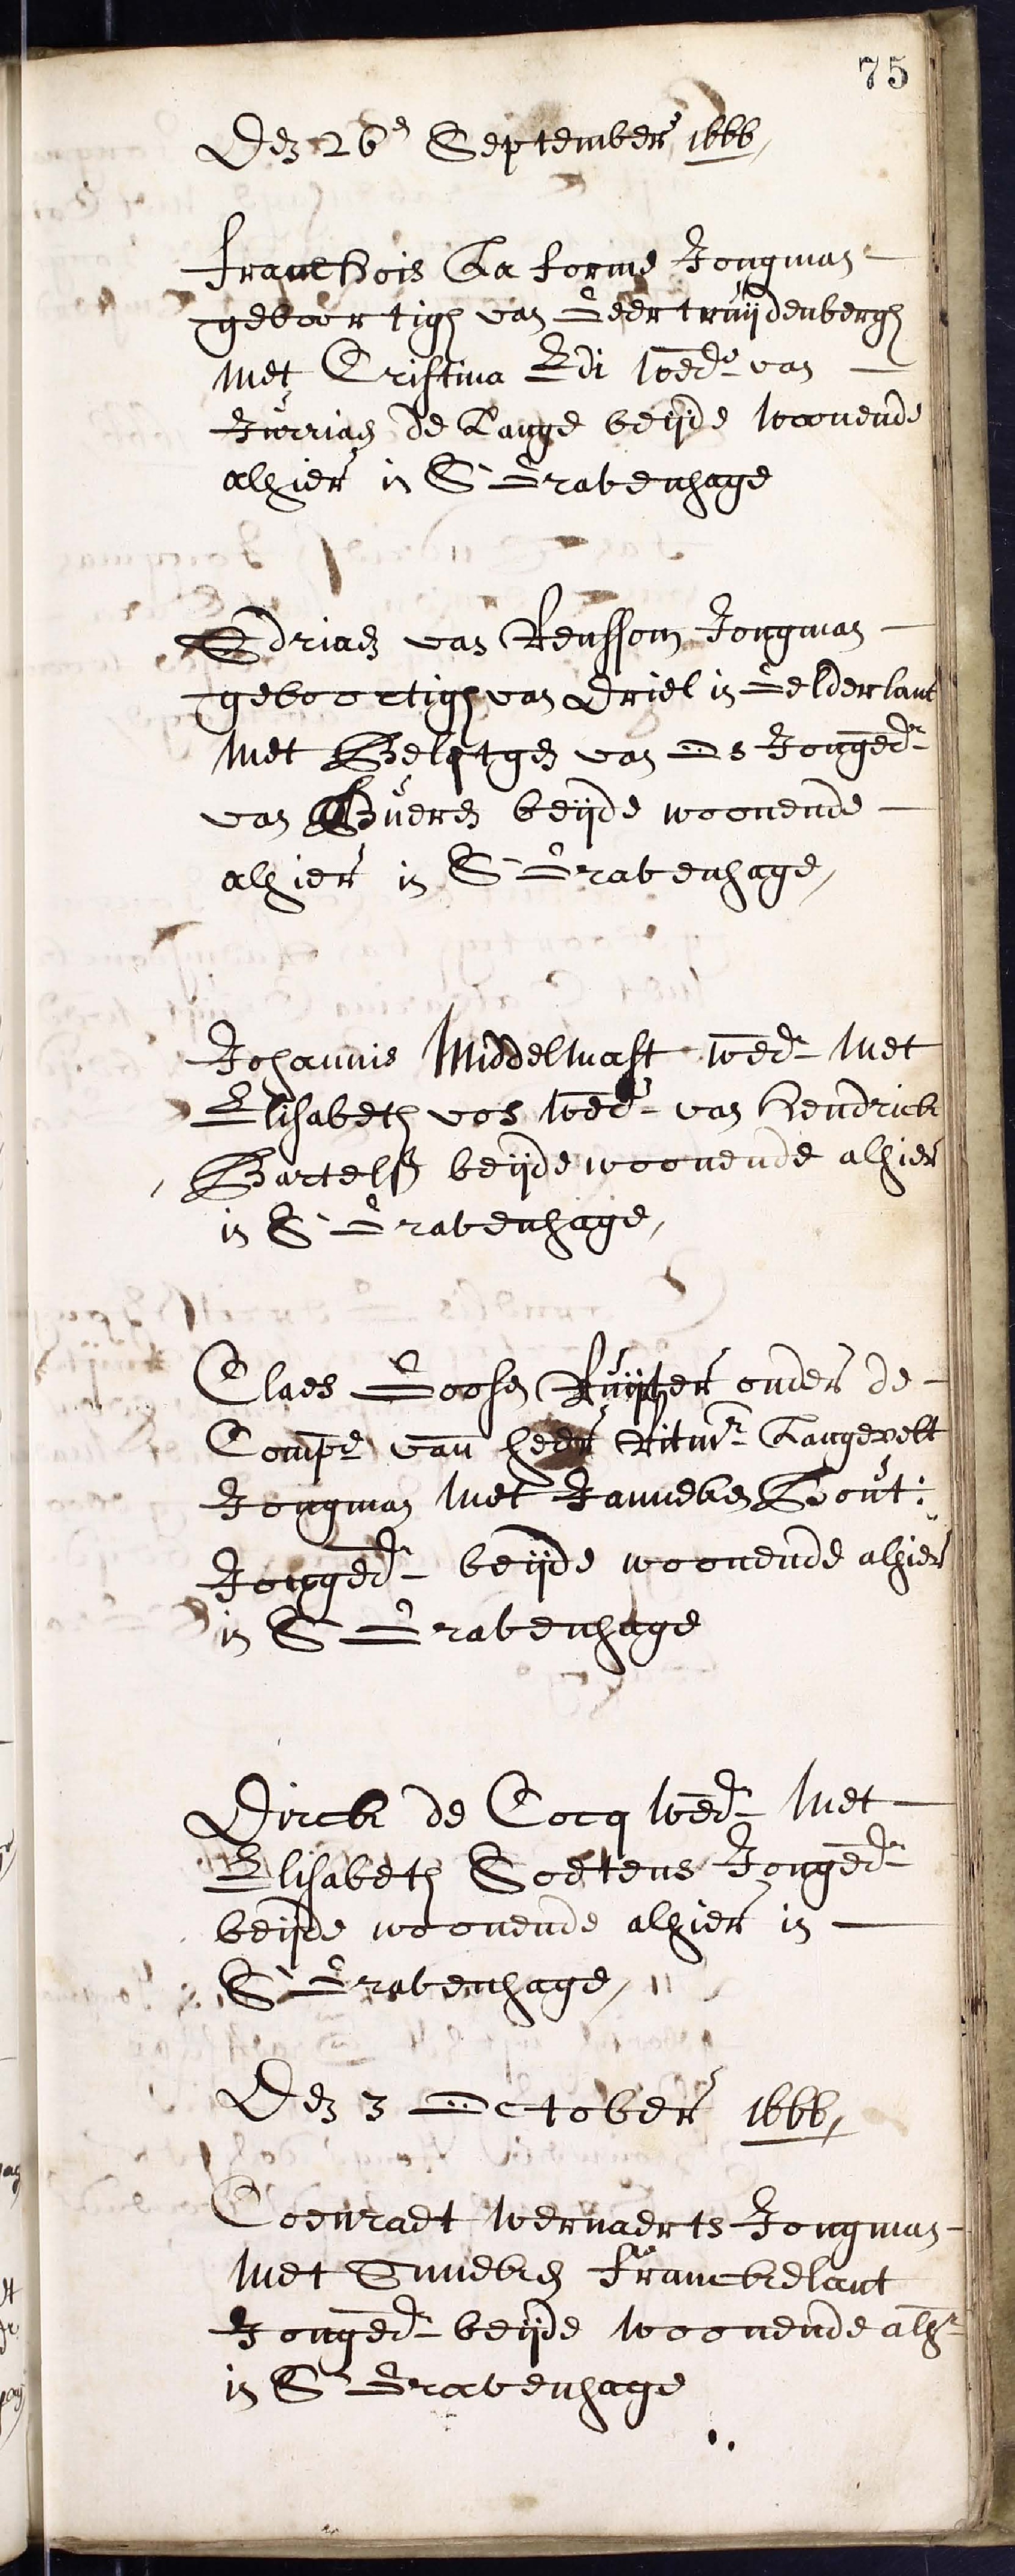 75
Den 26e September 1666,
Franchois La forme Jongman
geboortigh van Geertruijdenbergh
met Cristina Edi wede van
Jurrian de Lange beijde woonende
alhier in S Gravenhage
Adriaen van Renssom Jongman
geboortigh van Driel in Gelderlant
met van Os Jonged
van Bueren beijde woonende
alhier in S Gravenhage,
Johannis Middelmast wed met
Elisabeth vos wed van Hendrick
Bartelss beijde woonende alhier
in S Gravenhage,
Claes Goosen Ruijter onder de
Compe van heer Ritmr Langevelt
Jongman met Janneken Bout:
Jonged beijde woonende alhier
in S Gravenhage
Dirck de Cocq wed met
Elisabeth Soetens Jonged
beijde woonende alhier in
S Gravenhage,
Den 3 October 1666,
Coenradt wernaerts Jongman
met Anneken Franckelant
Jonged beijde woonende alhr
in S Gravenhage